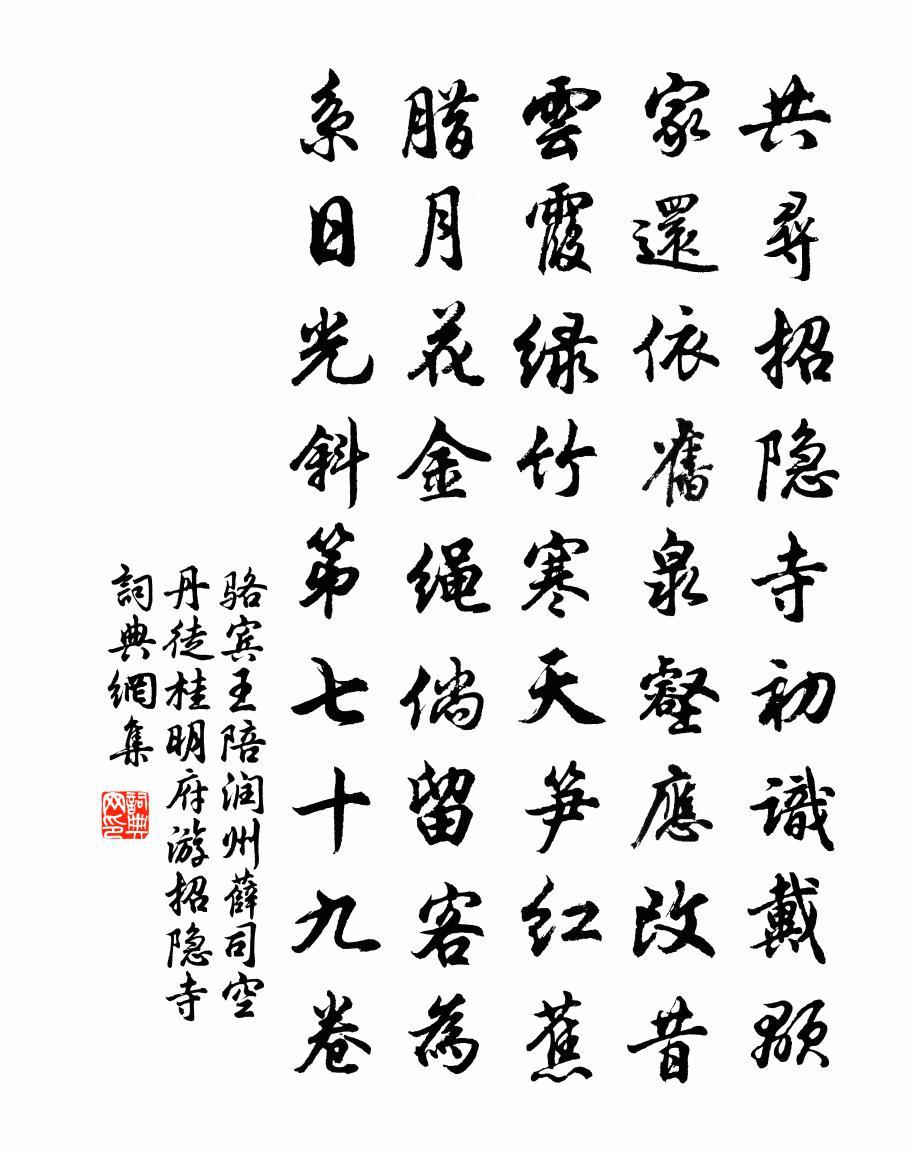 共尋招隐寺初識戴顒
家還依舊泉壑應改昔
雲霞绿竹寒天笋红蕉
腊月花金绳倘留客為
系日光斜第七十九卷
骆宾王陪润州薛司空
丹徒桂明府游招隐寺
詞典網集
詞典网印